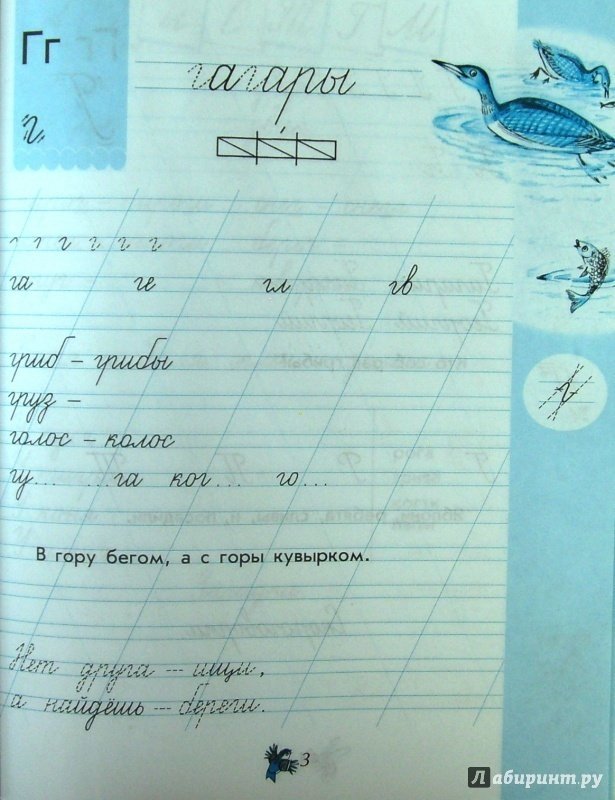 Гг
гагары
г
г г г г г г
га ге гл гв
гриб – грибы
груз –
голос – колос
гу... ...га ког... го...
г
В гору бегом, а с горы кувырком.
Нет друга — ищи,
а найдёшь — береги.
3
Лабиринт.ру